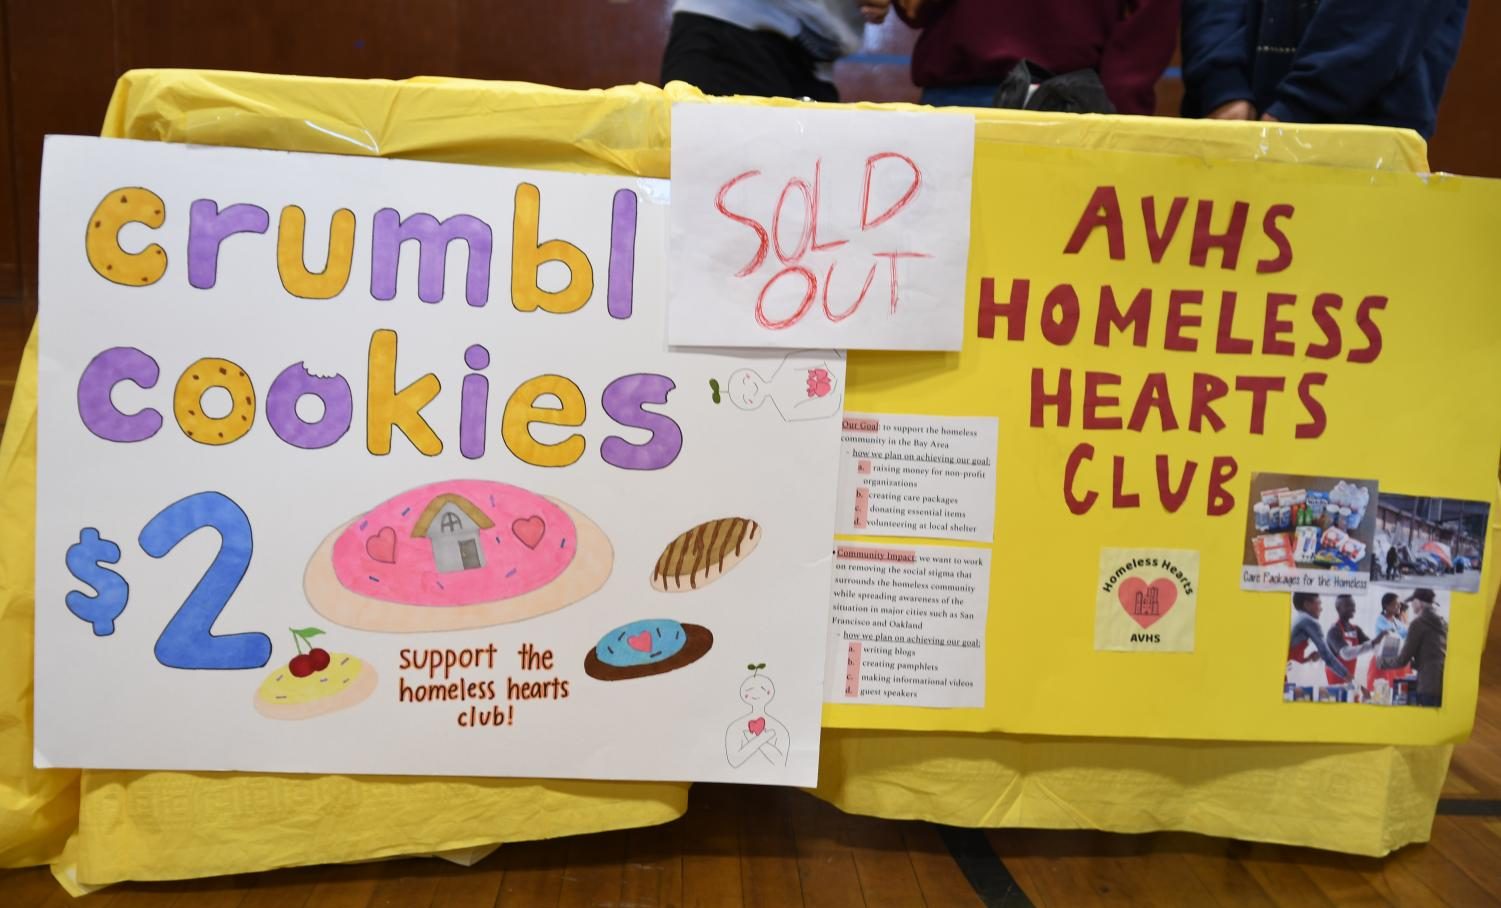 crumbl
cookies
$2
support the
homeless hearts
club!
SOLD
OUT
AVHS
HOMELESS
HEARTS
CLUB
Our Goal: to support the homeless
community in the Bay Area
- how we plan on achieving our goal:
a. raising money for non-profit
organizations
b. creating care packages
c. donating essential items
d. volunteering at local shelter
• Community Impact: we want to work
on removing the social stigma that
surrounds the homeless community
while spreading awareness of the
situation in major cities such as San
Francisco and Oakland
- how we plan on achieving our goal:
a. writing blogs
b. creating pamphlets
c. making informational videos
d. guest speakers
Homeless Hearts
AVHS
Care Packages for the Homeless